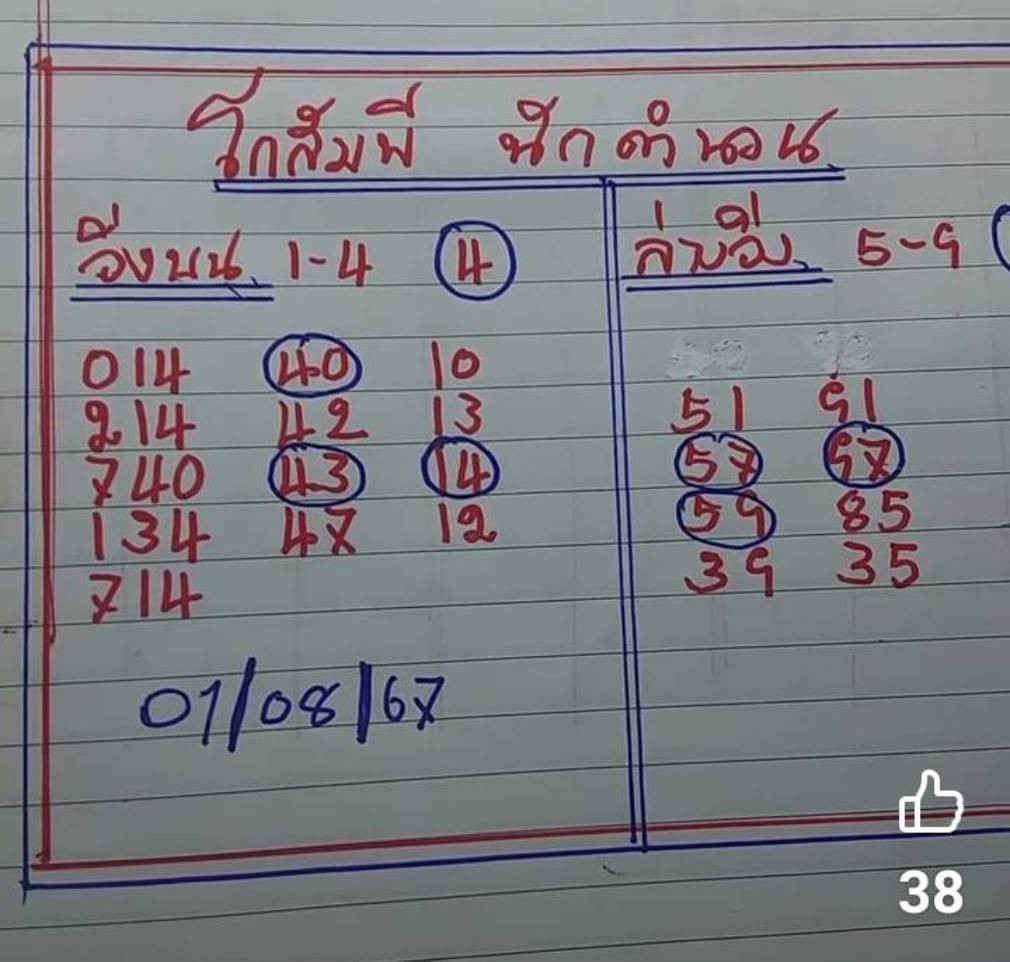 โกสัมพี นักคำนวน
วิ่งบน 1-4 4
014 40 10
214 42 13
740 43 14
134 47 12
714
01/08/67
ล่างวิ่ง 5-9
51 91
57 97
59 85
39 35
38